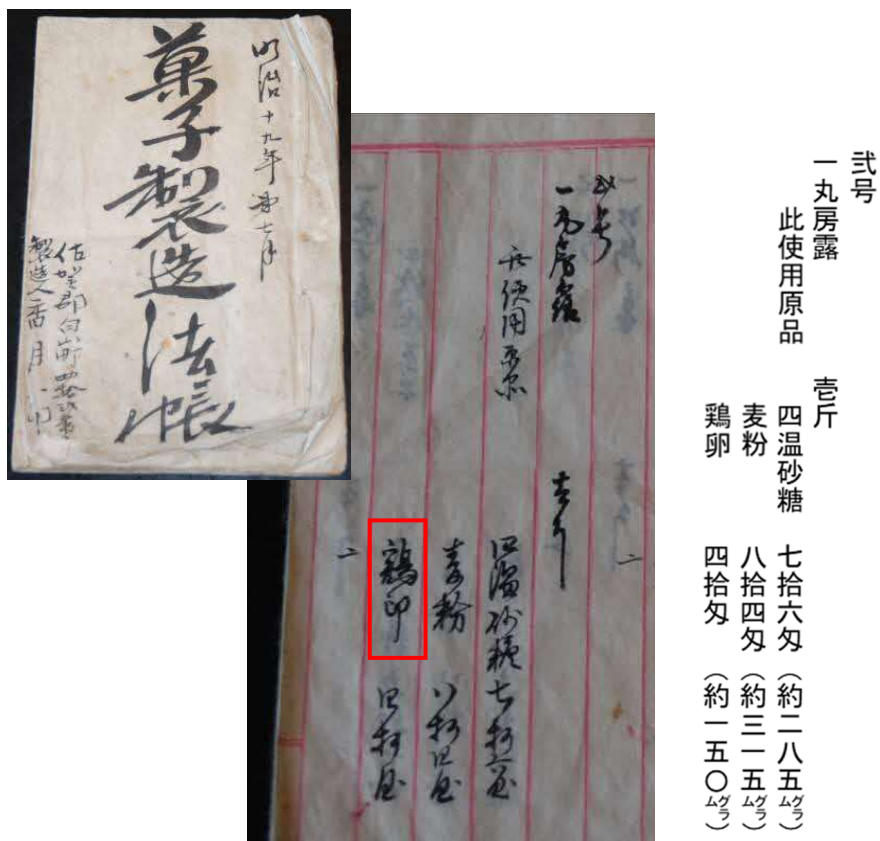 明治十九年第七月
菓子製造法帳
佐賀郡白山町四拾弐番
製造人香月
弐号
一丸房露 壱斤
此使用原品 四温砂糖七拾六匁
麦粉 八拾四匁
鶏卵 四拾匁
弐号
一丸房露 壱斤
此使用原品 四温砂糖 七拾六匁（約二八五グラム）
麦粉 八拾四匁（約三一五グラム）
鶏卵 四拾匁（約一五〇グラム）